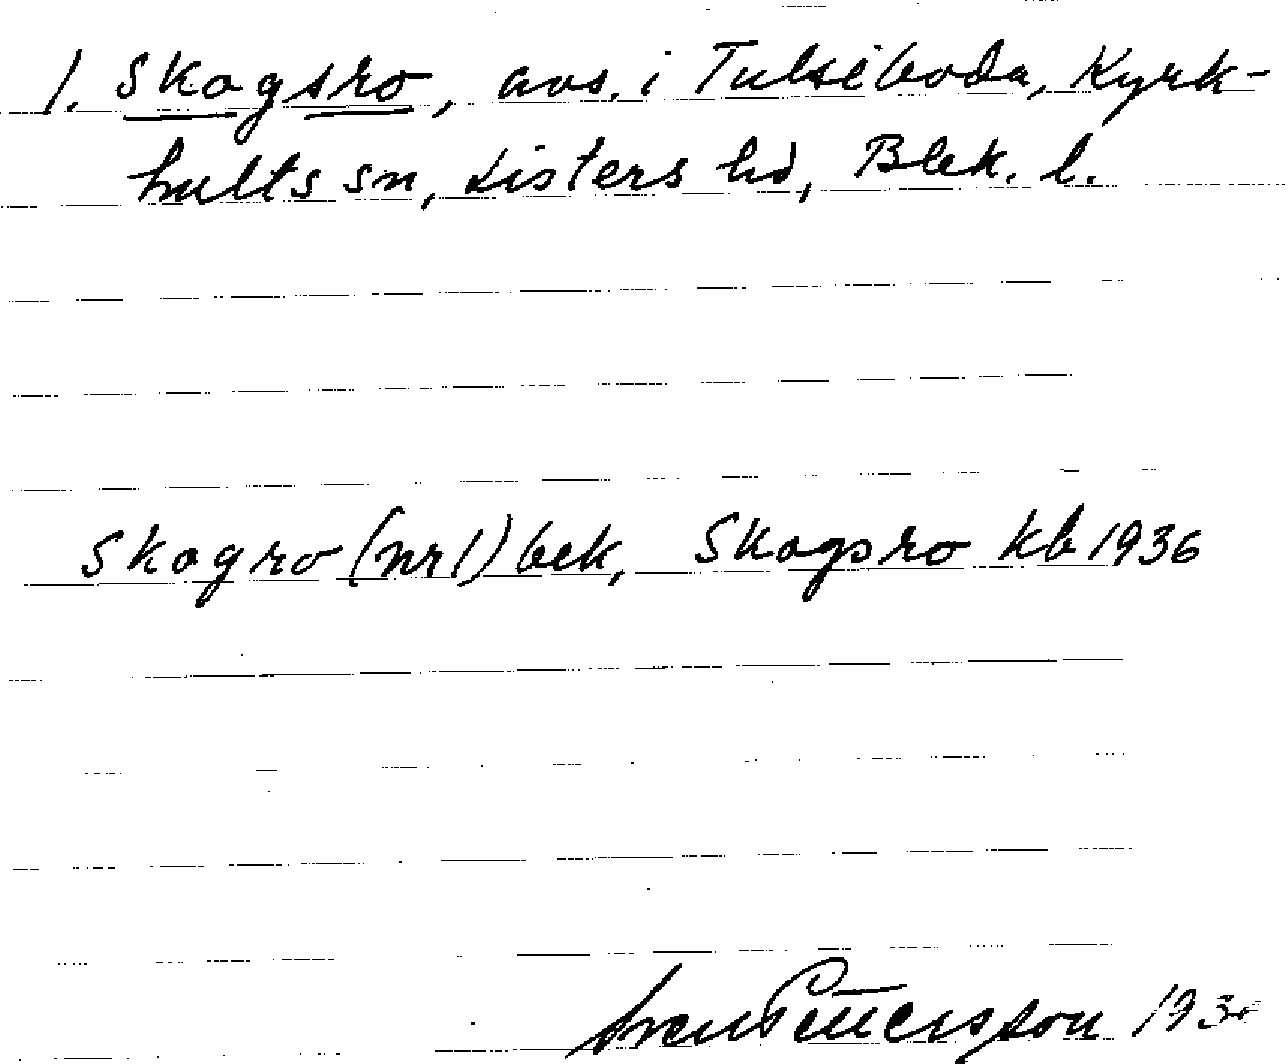 1. Skogsro, avs. i Tulseboda, Kyrk-
hults sn, Listers hd, Blek. l.
Skogro (nr 1) bek, Skogsro kb 1936
Sven Pettersson 193